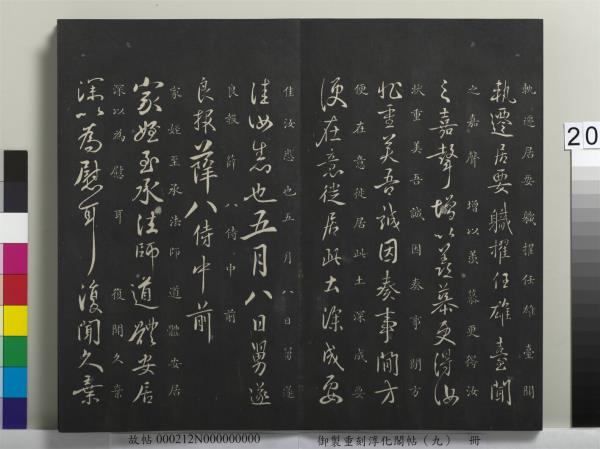 執遷居要職擢任雄臺聞
執遷居要職擢任雄臺聞
之嘉聲增以羨慕更得汝
之嘉聲增以羨慕更得汝
狀重美吾誠因奏事閒方
狀重美吾誠因奏事閒方
便在意徙居此土深成要
便在意徙居此土深成要
佳汝悉也五月八日舅遂
佳汝悉也五月八日舅遂
良報薛八侍中前
良報薛八侍中前
家姪至承法師道體安居
家姪至承法師道體安居
深以為慰耳復聞久棄
深以為慰耳復聞久棄
20
故帖 000212N000000000
御製重刻淳化閣帖（九） 冊